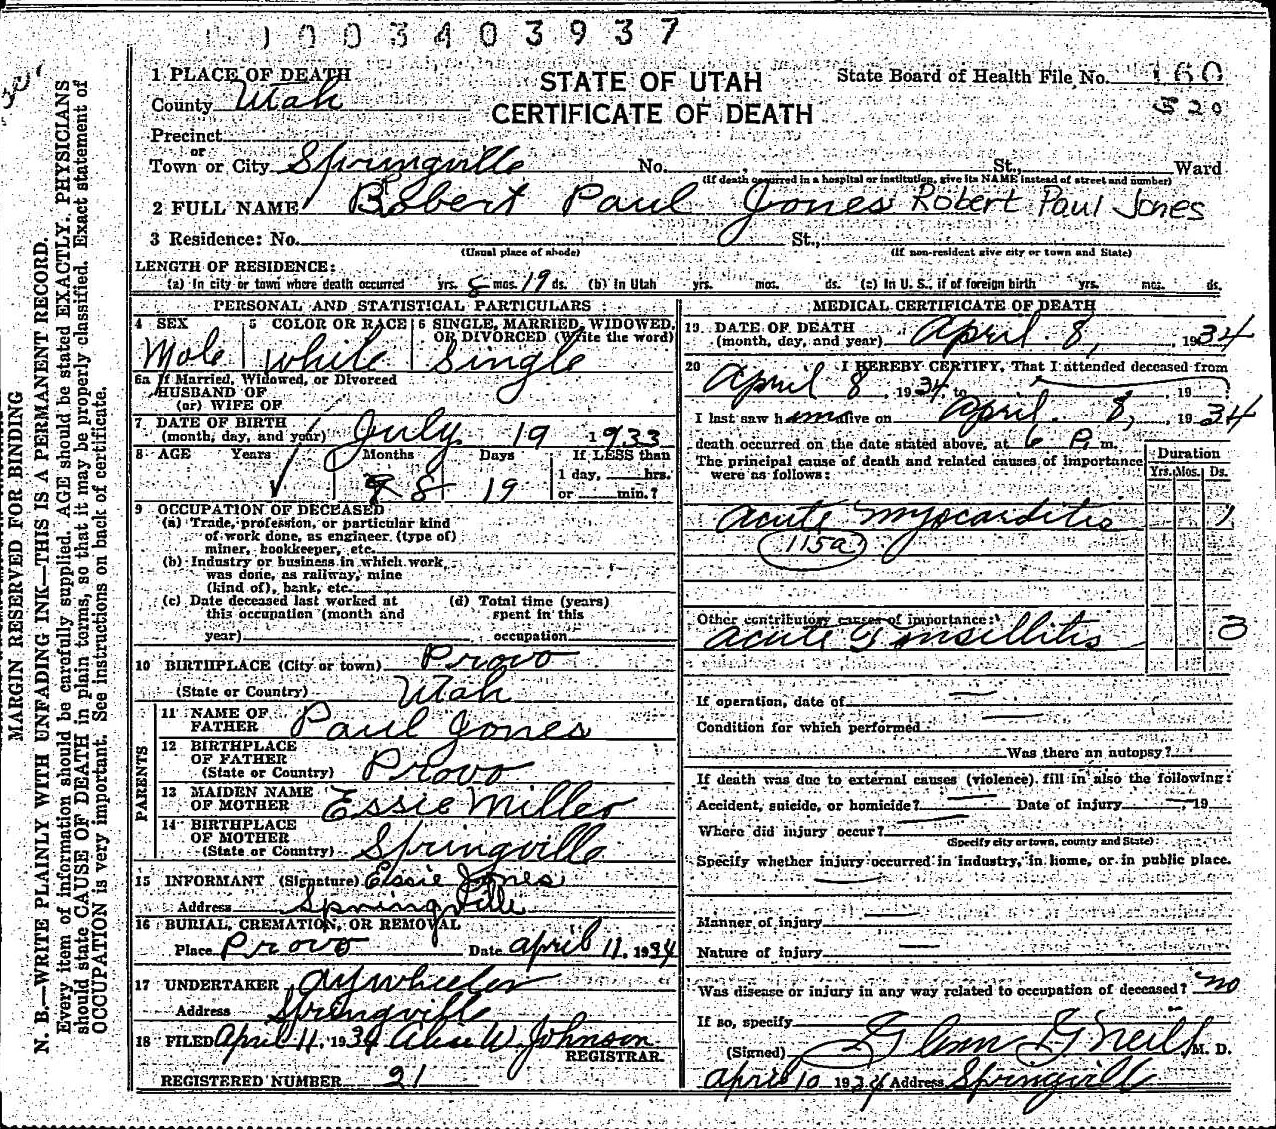 1003403937
1 PLACE OF DEATH
STATE OF UTAH
CERTIFICATE OF DEATH
State Board of Health File No. 160
320
County Utah
Precinct
or
Town or City Springville No. St., Ward
(If death occurred in a hospital or institution, give its NAME instead of street and number)
2 FULL NAME Robert Paul Jones Robert Paul Jones
3 Residence: No. St.,
(Usual place of abode) (If non-resident give city or town and State)
LENGTH OF RESIDENCE:
(a) In city or town where death occurred yrs. 8 mos. 19 ds. (b) In Utah yrs. mos. ds. (c) In U. S., if of foreign birth yrs. mos. ds.
PERSONAL AND STATISTICAL PARTICULARS
4 SEX
Male
5 COLOR OR RACE
White
6 SINGLE, MARRIED, WIDOWED,
OR DIVORCED (Write the word)
Single
6a If Married, Widowed, or Divorced
HUSBAND OF
(or) WIFE OF
7 DATE OF BIRTH
(month, day, and year) July 19 1933
8 AGE Years Months Days If LESS than
8 19 1 day, hrs.
or min.?
9 OCCUPATION OF DECEASED
(a) Trade, profession, or particular kind
of work done, as engineer (type of)
miner, bookkeeper, etc.
(b) Industry or business in which work
was done, as railway, mine
(kind of), bank, etc.
(c) Date deceased last worked at
this occupation (month and
year)
(d) Total time (years)
spent in this
occupation
10 BIRTHPLACE (City or town) Provo
(State or Country) Utah
PARENTS
11 NAME OF
FATHER Paul Jones
12 BIRTHPLACE
OF FATHER
(State or Country) Provo
13 MAIDEN NAME
OF MOTHER Essie Miller
14 BIRTHPLACE
OF MOTHER
(State or Country) Springville
15 INFORMANT (Signature) Essie Jones
Address Springville
16 BURIAL, CREMATION, OR REMOVAL
Place Provo Date April 11, 1934
17 UNDERTAKER A Y Wheeler
Address Springville
18 FILED April 11, 1934 Alice W. Johnson
REGISTRAR.
REGISTERED NUMBER 21
MEDICAL CERTIFICATE OF DEATH
19 DATE OF DEATH
(month, day, and year) April 8, 1934
20 I HEREBY CERTIFY, That I attended deceased from
April 8, 1934, to , 19
I last saw him alive on April 8, 1934
death occurred on the date stated above, at 6 P. m.
The principal cause of death and related causes of importance
were as follows:
Duration
Yrs. Mos. Ds.
Acute Myocarditis 1
115a
Other contributory causes of importance:
Acute Tonsillitis 3
If operation, date of
Condition for which performed
Was there an autopsy?
If death was due to external causes (violence) fill in also the following:
Accident, suicide, or homicide? Date of injury 19
Where did injury occur?
(Specify city or town, county and State)
Specify whether injury occurred in industry, in home, or in public place.
Manner of injury
Nature of injury
Was disease or injury in any way related to occupation of deceased? no
If so, specify
(Signed) Glenn G Neill, M. D.
April 10 1934 Address Springvill
MARGIN RESERVED FOR BINDING
N. B.—WRITE PLAINLY WITH UNFADING INK—THIS IS A PERMANENT RECORD.
Every item of information should be carefully supplied. AGE should be stated EXACTLY. PHYSICIANS
should state CAUSE OF DEATH in plain terms, so that it may be properly classified. Exact statement of
OCCUPATION is very important. See instructions on back of certificate.